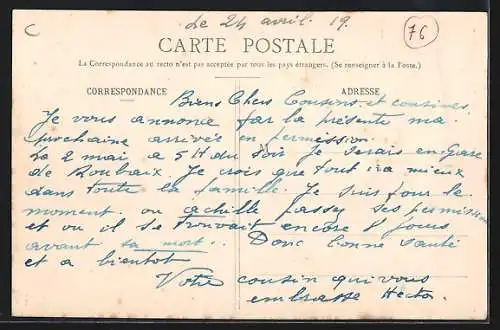 C
le 24 avril. 19.
76
CARTE POSTALE
La Correspondance au recto n'est pas acceptée par tous les pays étrangers. (Se renseigner à la Poste.)
CORRESPONDANCE
ADRESSE
Biens Chers Cousins et cousines,
Je vous annonce par la présente ma
prochaine arrivée en permission
Le 2 mai a 5H du soir je serais en Gare
de Roubaix. Je crois que tout ira mieux
dans toute la famille. Je suis pour le
moment. ou achille passez ses permission
et ou il se trouvait encore 8 jours
avant sa mort. Donc bonne santé
et a bientot
Votre cousin qui vous
embrasse Hector.